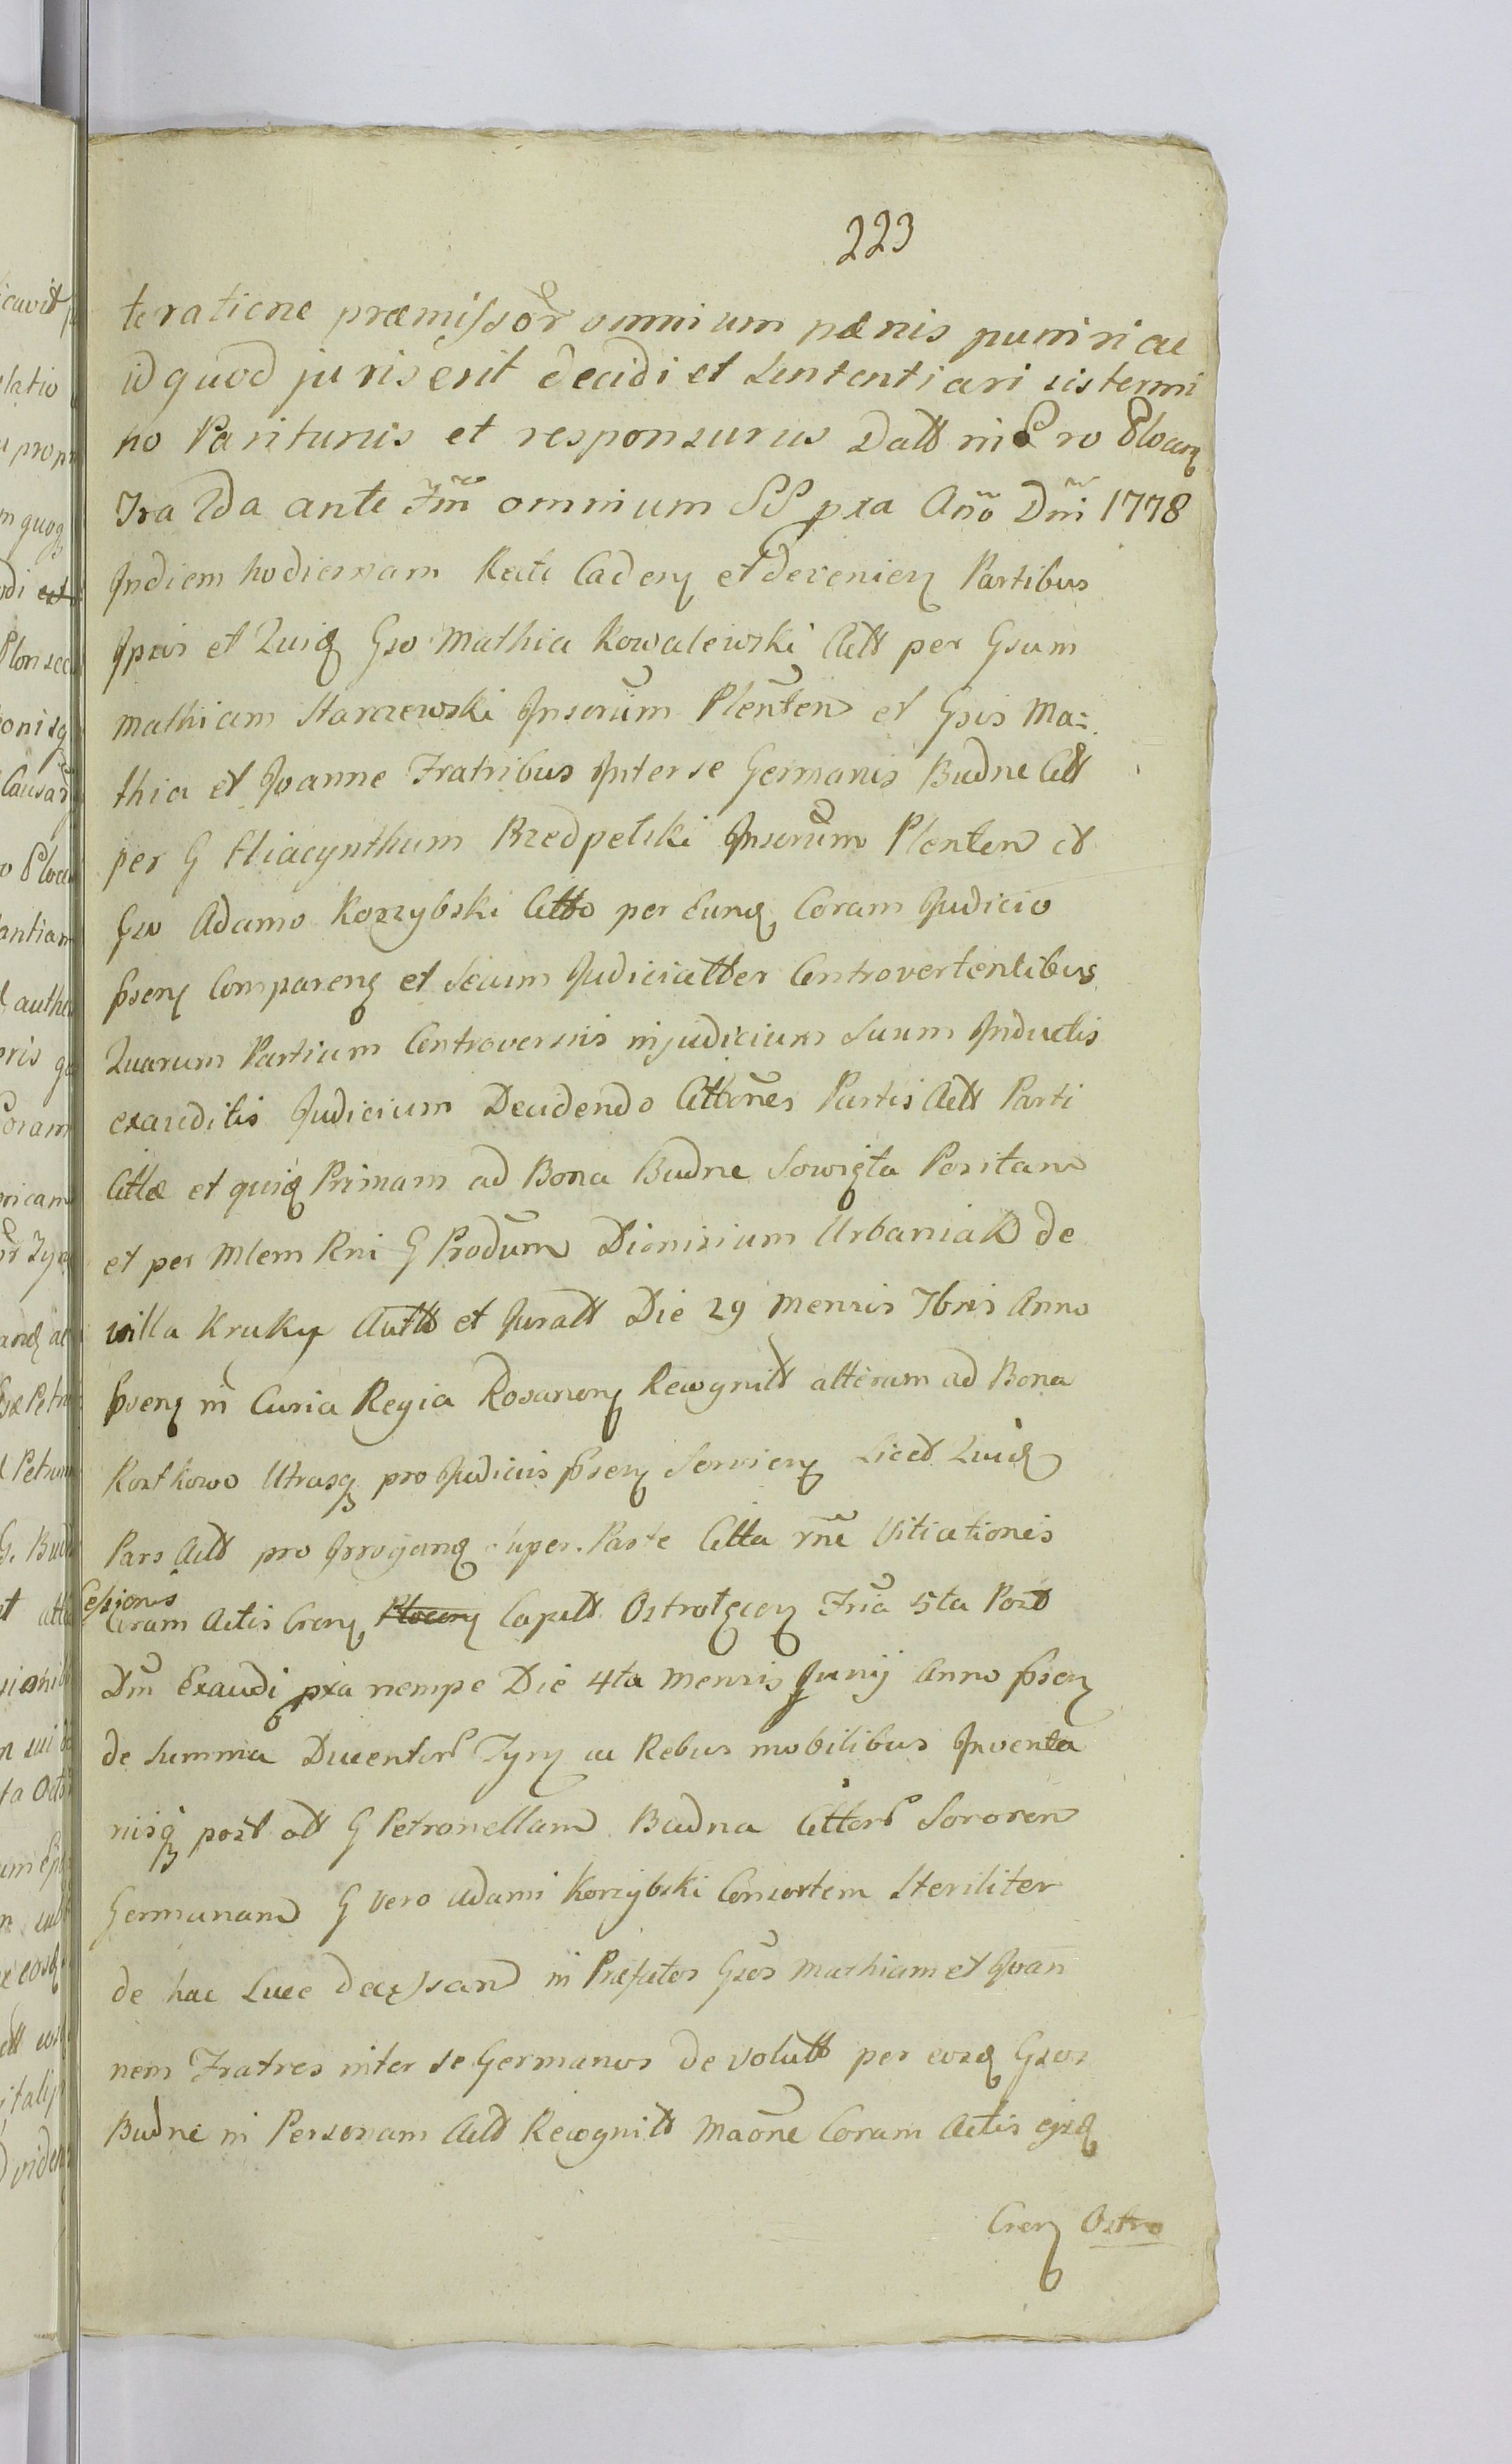 223
te ratione præmissor omnium pænis puniri ac
id quod juris erit decidi et sententiari sis termi
no Pariturus et responsurus Datt in Cro Plocen
Fra 2da ante Fm omnium SS pxa Año Dni 1778
In diem hodiernam Recte Caden et devenien Partibus
Ipsis et Quidq Gso Mathia Kowalewski Actt per Gsum
Mathiam Starczewski Inserum Plenten et Gsis Ma=
thia et Joanne Fratribus Inter se Germanis Budne Citt
per G Hiacynthum Rzedpelski Inserum Plenten et
Gso Adamo Korzybski Citto per Eunq Coram Judicio
pnsenq Comparenq et Secum Judicialiter Controvertentibus
Quarum Partium Controversiis in judicium Suum Inductis
exauditis Judicium Decidendo Cittones Partis Actt Parti
Cittæ et quidq Primam ad Bona Budne Sowięta Positam
et per Mlem Rni G Prodūm Dionisium Urbaniak de
villa Kruky Autt et Juratt Die 29 Mensis 7bris Anno
pnsenq in Curia Regia Rosanenq Recognitt alteram ad Bona
Kostkowo Utrasq pro Judiciis pnsenq Servien Licet Quidq
Pars Actt pro Irroganq super Parte Citta rne Vitiationis
Cessionis
Coram Actis Crenq Plocenq Capitt Ostrolęcenq Fria 5ta Post
Dm Exaudi pxa nempe Die 4ta Mensis Junij Anno pnsenq
de Summa Ducentor Tynf ac Rebus mobilibus Inventa
risq post ott G Petronellam Budna Cittor Sororem
Germanam G vero Adami Korzybski Consortem Steriliter
de hac Luce decessam in Præfatos Gsos Mathiam et Joan
nem Fratres inter se Germanos devolutt per eosq Gsos
Budne in Personam Actt Recognitt Maone Coram Actis ejsq
Crenq Ostro